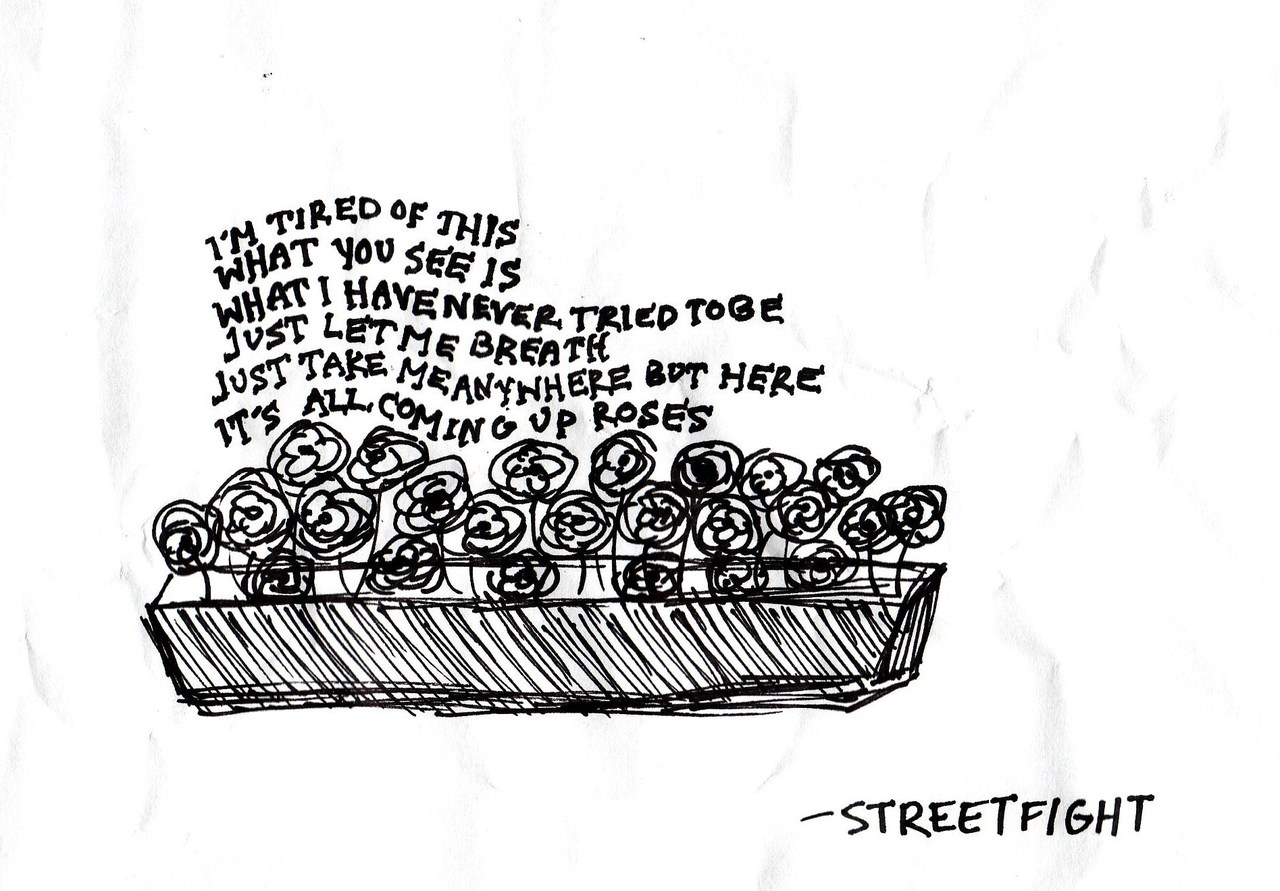 I'M TIRED OF THIS
WHAT YOU SEE IS
WHAT I HAVE NEVER TRIED TO BE
JUST LET ME BREATH
JUST TAKE ME ANYWHERE BUT HERE
IT'S ALL COMING UP ROSES
-STREETFIGHT